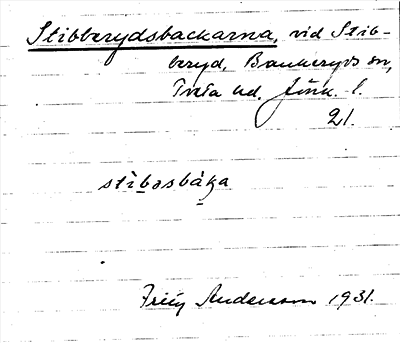 Stibberydsbackarna, vid Stib-
beryd, Bankeryds sn,
Tveta hd. Jönk. l.
21.
stìbəsbàka
Andersson 1931.